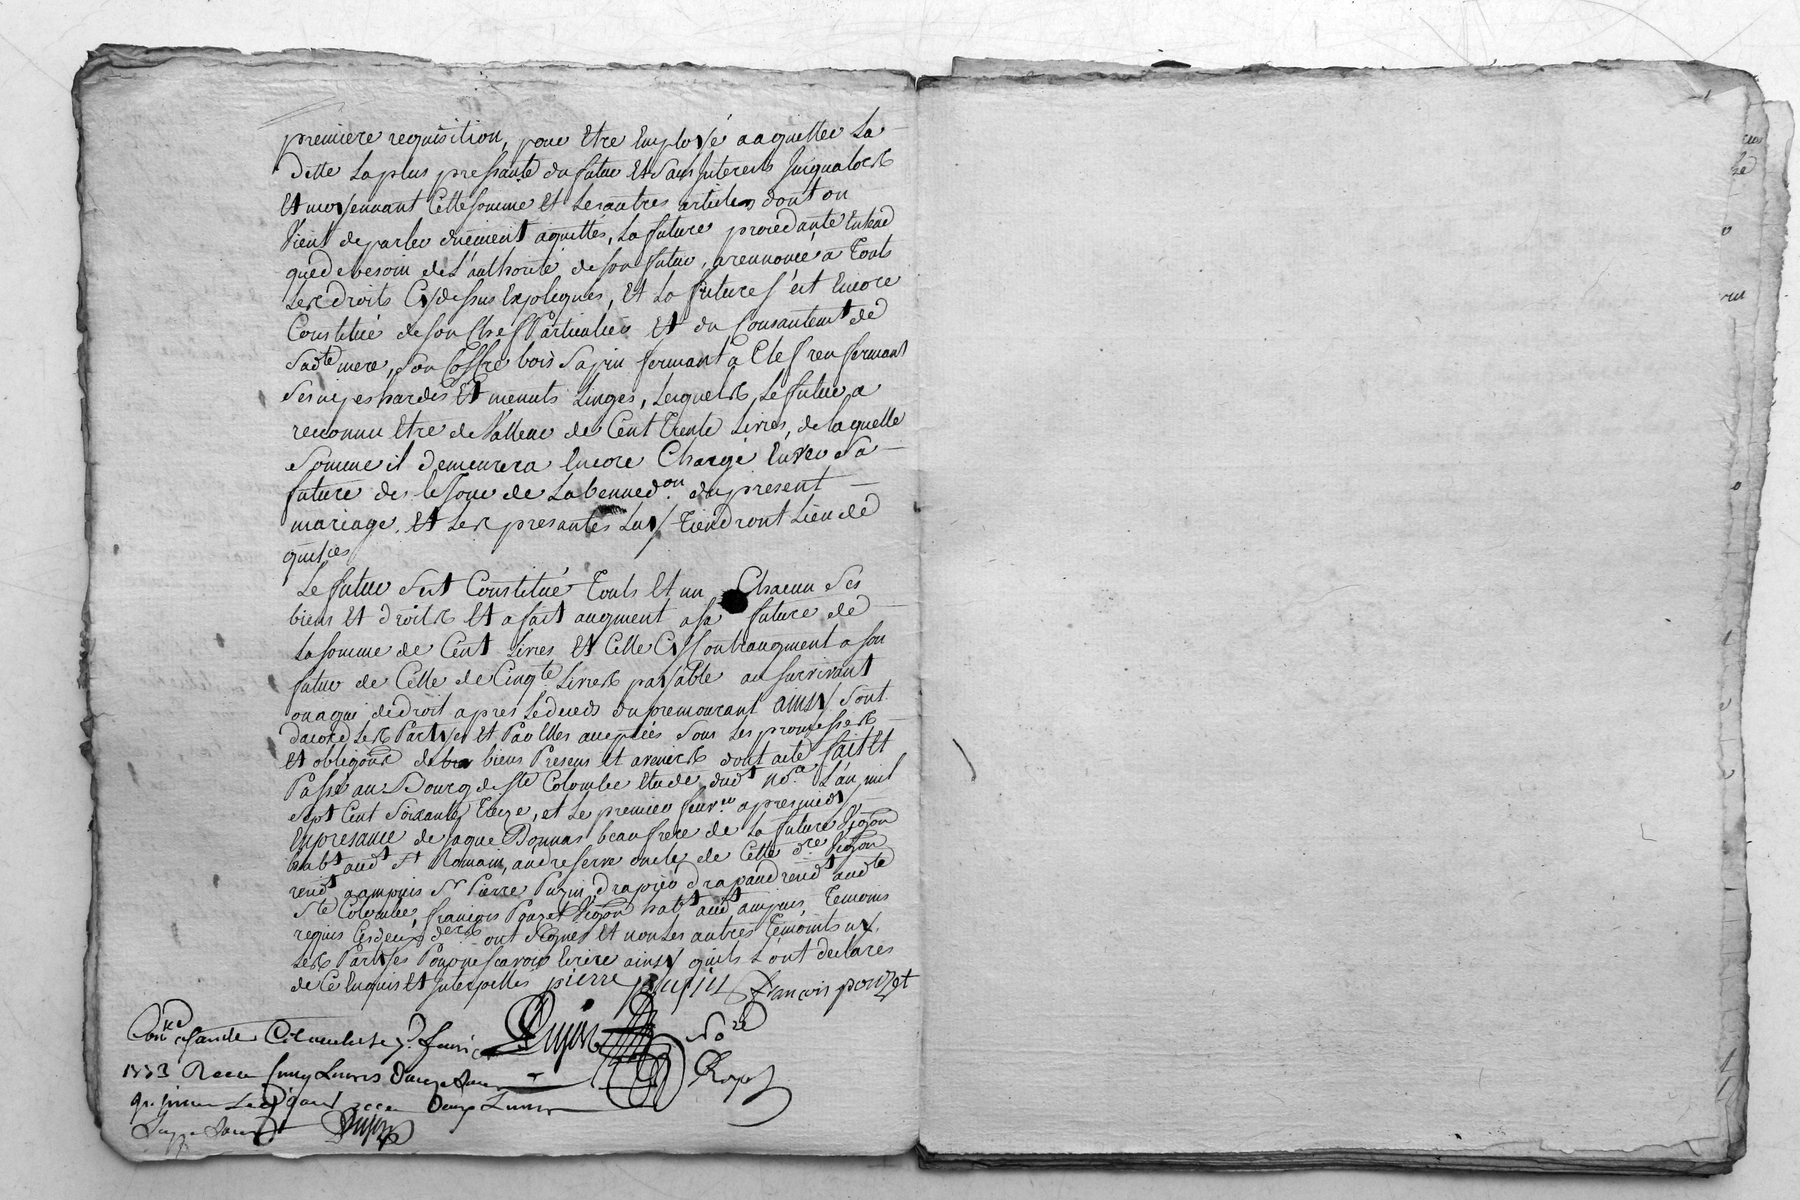 premiere requisition, pour Etre Employé a aquitter La
dette La plus pressante du futur Et sans Interets Jusqualors
Et moyennant Cette somme Et Les autres articles dont on
Vient de parler duement aquittés, La future procedante Entend
que de besoin de L'authorité de son futur, a rennoncé a Touts
Les droits Cy dessus Expliqués, Et La future s'est Encore
Constitué de son Chef Particulier Et du Consantemt de
Sadte mere, Son Coffre bois Sapin fermant a Clef renfermant
Ses nipes hardes Et menuts Linges, Lesquels Le futur a
reconnu Etre de Valleur de Cent Trente Livres, de laquelle
Somme il demeurera Encore Chargé Envers Sa
future des le Jour de La benned.on du present
mariage, Et Les presantes Luy Tiendront Lieu de
quitces
Le futur Sest Constitué Touts Et un Chacun Ses
biens Et droits Et a fait augment a Sa future de
La somme de Cent Livres Et Celle Cy Contraugment a son
futur de Celle de Cinqte Livres payable au Survivant
ou a qui de droit apres Le deceds du premourant ainsy Sont
dacord Les Parties Et Par Elles acceptées Sous Les promesses
Et obligons de biens Presens Et avenirs dont acte fait Et
Passé au Bourg de Ste Colombe Etude dudt nore L'an mil
Sept Cent Soixante Treze, et Le premier fevrier apres midy
En presance de Jaque Bonnas beaufrere de La future Vigon
habt audt St Romain, andre serve oncle de Cette dre Vigon
rendt a ampuis Sr Pierre Puzin drapier drapand rendt audte
Ste Colombe, françois Pouzet Vigon habt audt ampuis Temoins
requis Les deux ders ont Signes Et non Les autres Temoints ny
Les Parties Pour ne scavoir Ecrire ainsy quils L'ont declares
de Ce Enquis Et Interpelles pierre puzin François pouzet
Dujon Nore Royal
Conlé a Sainte Colombe le 7e fevrier
1773 Receu Cinq Livres Douze Sous
receu Douze Livres
Dujon